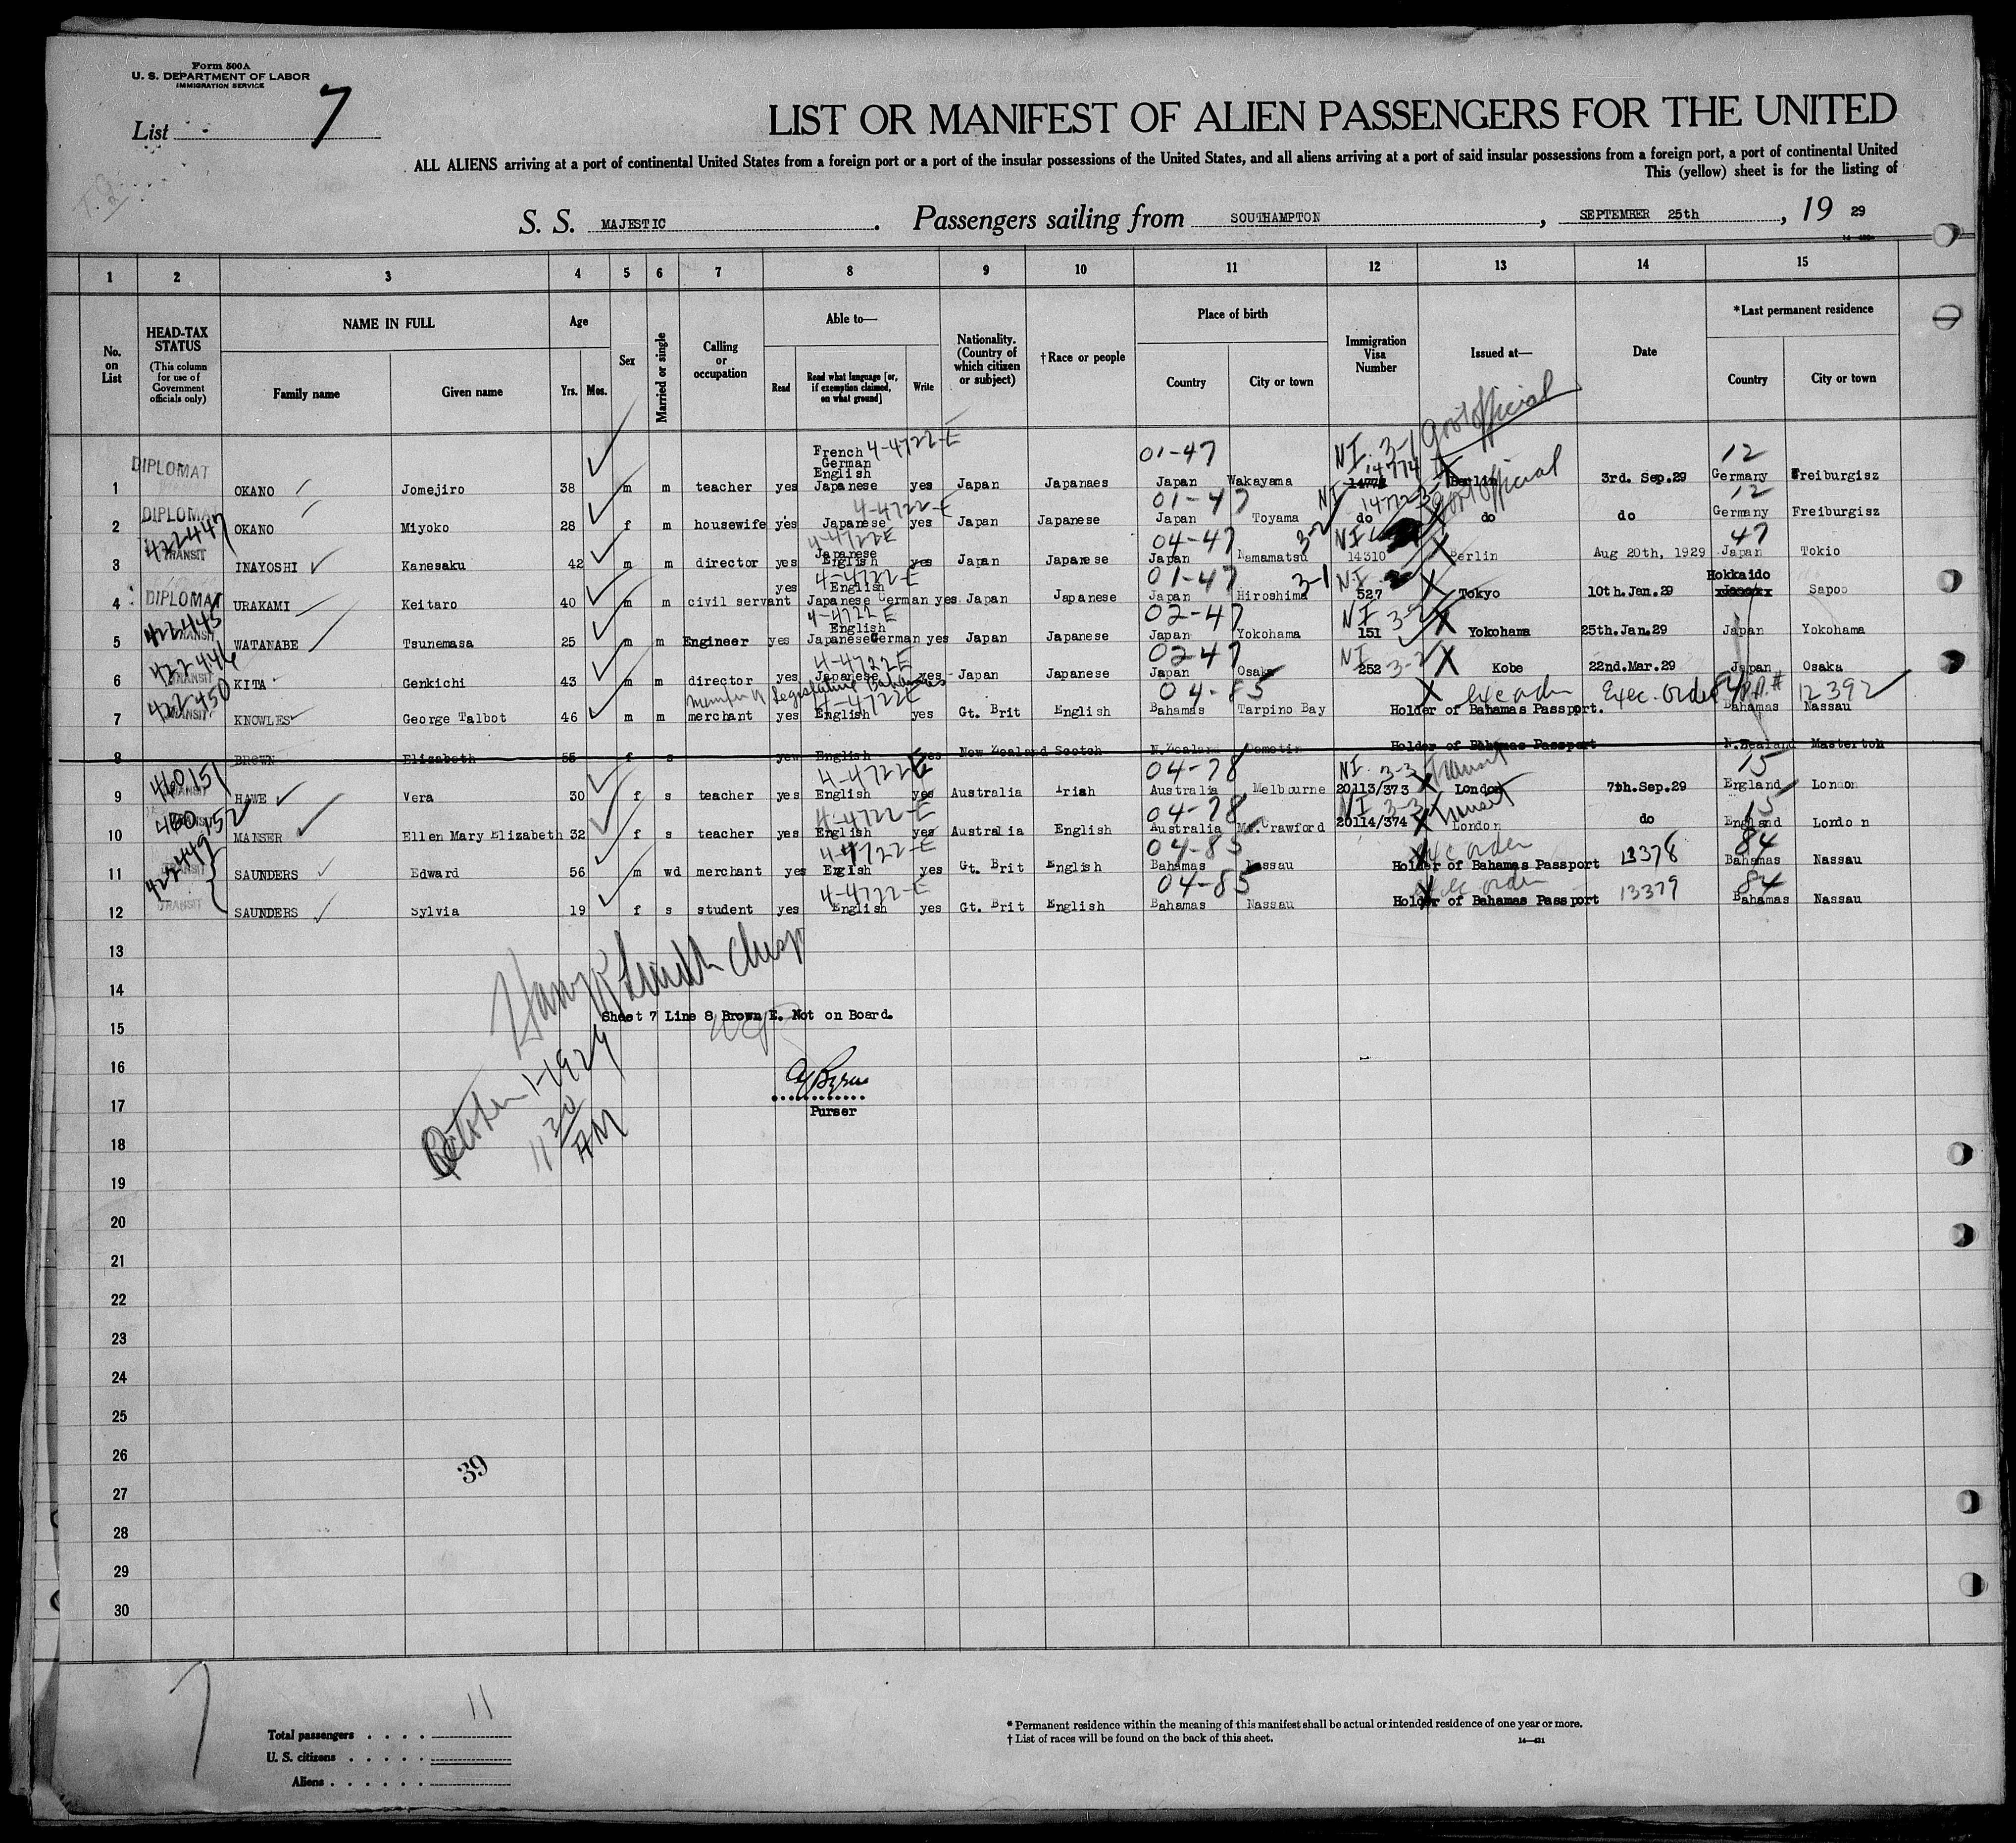 Form 500A
U. S. DEPARTMENT OF LABOR
IMMIGRATION SERVICE
List 7
LIST OR MANIFEST OF ALIEN PASSENGERS FOR THE UNITED
ALL ALIENS arriving at a port of continental United States from a foreign port or a port of the insular possessions of the United States, and all aliens arriving at a port of said insular possessions from a foreign port, a port of continental United
This (yellow) sheet is for the listing of
S. S. MAJESTIC. Passengers sailing from SOUTHAMPTON, SEPTEMBER 25th, 19 29
1 2 3 4 5 6 7 8 9 10 11 12 13 14 15
No. on List
HEAD-TAX STATUS (This column for use of Government officials only)
NAME IN FULL Family name Given name
Age Yrs. Mos.
Sex
Married or single
Calling or occupation
Able to— Read Read what language [or, if exemption claimed, on what ground] Write
Nationality. (Country of which citizen or subject)
†Race or people
Place of birth Country City or town
Immigration Visa Number
Issued at—
Date
*Last permanent residence Country City or town
French 4-4722-E 01-47 NI 3-1 Gov't official 12
German
DIPLOMAT English 14774
1 OKANO Jomejiro 38 m m teacher yes Japanese yes Japan Japanaes Japan Wakayama Berlin 3rd. Sep.29 Germany Freiburgisz
DIPLOMAT 4-4722-E 01-47 NI 14772 3-1 Gov't official 12
2 OKANO Miyoko 28 f m housewife yes Japanese yes Japan Japanese Japan Toyama do do do Germany Freiburgisz
422447 TRANSIT 4-4722E 04-47 3-2 NI 47
3 INAYOSHI Kanesaku 42 m m director yes Japanese English yes Japan Japanese Japan Hamamatsu 14310 Berlin Aug 20th, 1929 Japan Tokio
DIPLOMAT 4-4722-E 01-47 3-1 NI Hokkaido
4 URAKAMI Keitaro 40 m m civil servant yes English Japanese German yes Japan Japanese Japan Hiroshima 527 Tokyo 10th.Jan.29 Sapoo
422445 TRANSIT 4-4722E 02-47 NI 3-2
5 WATANABE Tsunemasa 25 m m Engineer yes English Japanese German yes Japan Japanese Japan Yokohama 151 Yokohama 25th.Jan.29 Japan Yokohama
422446 TRANSIT 4-4722E 02-47 NI 3-2
6 KITA Genkichi 43 m m director yes Japanese yes Japan Japanese Japan Osaka 252 Kobe 22nd.Mar.29 Japan Osaka
422450 TRANSIT Member of Legislature Bahamas 4-4722E 04-85 exe order Exec. order 84 P.P.# 12392
7 KNOWLES George Talbot 46 m m merchant yes English yes Gt. Brit English Bahamas Tarpino Bay Holder of Bahamas Passport. Bahamas Nassau
8 BROWN Elizabeth 55 f s yes English yes New Zealand Scotch N.Zealand Holder of Bahamas Passport N.Zealand Masterton
460151 TRANSIT 4-4722E 04-78 NI 3-3 Transit 15
9 HAWE Vera 30 f s teacher yes English yes Australia Irish Australia Melbourne 20113/373 London 7th.Sep.29 England London
460152 4-4722-E 04-78 NI 3-3 Transit 15
10 MANSER Ellen Mary Elizabeth 32 f s teacher yes English yes Australia English Australia Mt.Crawford 20114/374 London do England London
422449 TRANSIT 4-4722-E 04-85 exe order 84
11 SAUNDERS Edward 56 m wd merchant yes English yes Gt. Brit English Bahamas Nassau Holder of Bahamas Passport 13378 Bahamas Nassau
TRANSIT 4-4722-E 04-85 exe order 84
12 SAUNDERS Sylvia 19 f s student yes English yes Gt. Brit English Bahamas Nassau Holder of Bahamas Passport 13379 Bahamas Nassau
13
14
Sheet 7 Line 8 Brown E. Not on Board.
15
October 1-1929
16
17
Purser
11 30 AM
18
19
20
21
22
23
24
25
26
39
27
28
29
30
7
11
Total passengers
U. S. citizens
Aliens
* Permanent residence within the meaning of this manifest shall be actual or intended residence of one year or more.
† List of races will be found on the back of this sheet.
14—431